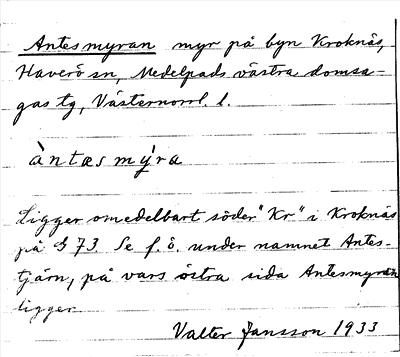 Antesmyran myr på byn Kroknäs,
Haverö sn, Medelpads västra domsa-
gas tg, Västernorrl. l.
àntæsmý̀ra
Ligger omedelbart söder "Kr" i Kroknäs
på G 73. Se f. ö. under namnet Antes-
tjärn, på vars östra sida Antesmyran
ligger.
Valter Jansson 1933